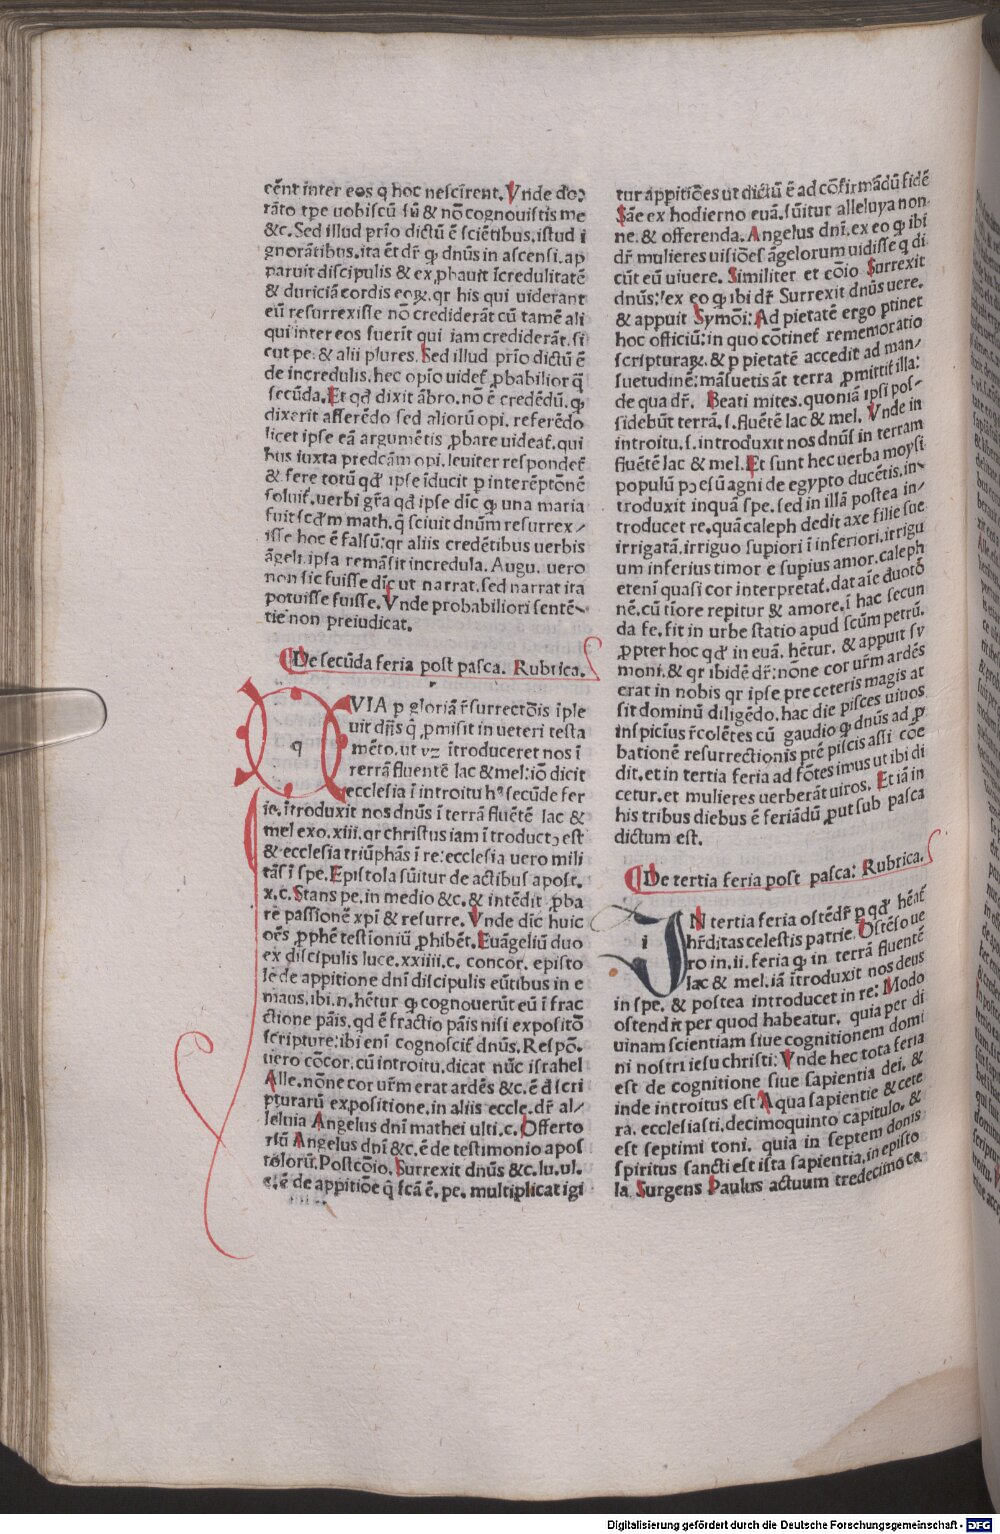 cẽnt inter eos q hoc nescirent. Vnde do⁊
rãto tpe uobiscũ sũ & nõ cognouistis me
&c. Sed illud prĩo dictũ ẽ sciẽtibus. istud i
gnorãtibus. ita ẽt dr̃ ꝙ dnũs in ascensi. ap
paruit discipulis & exꝓbauit ĩcredulitatẽ
& duriciã cordis eoꝝ. qr his qui uiderant
eũ resurrexisse nõ crediderãt cũ tamẽ ali
qui inter eos fuerĩt qui iam crediderãt. si
cut pe. & alii plures. Sed illud prĩo dictũ ẽ
de incredulis. hec opĩo uidet̃ ꝓbabilior q̃
secũda. Et qđ dixit ãbro. nõ ẽ credẽdũ. ꝙ
dixerit asserẽdo sed aliorũ opi. referẽdo
licet ipse eã argumẽtis ꝓbare uideat̃. qui
bus iuxta predcãm opi. leuiter respondet̃
& fere totũ qđ ipse ĩducit p interẽptõnẽ
soluit̃. uerbi gr̃a qđ ipse dĩc ꝙ una maria
fuit scđm math. q̃ sciuit dnũm resurrex⸗
isse hoc ẽ falsũ: qr aliis credẽtibus uerbis
ãgeli. ipsa remãsit incredula. Augu. uero
non sic fuisse dĩc ut narrat. sed narrat ita
potuisse fuisse. Vnde probabiliori sentẽ⸗
tie non preiudicat.
De secũda feria post pasca. Rubrica.
q VIA p gloriã r̃surrectõis ĩple
uit dñs q̃ ꝓmisit in ueteri testa
mẽto. ut vz ĩtroduceret nos ĩ
terrã fluentẽ lac & mel: iõ dicit
ecclesia ĩ introitu hꝰ secũde fer
ie. ĩtroduxit nos dnũs ĩ terrã fluẽtẽ lac &
mel exo. xiii. qr christus iam ĩtroductꝰ est
& ecclesia triũphãs ĩ re: ecclesia uero mili
tãs ĩ spe. Epistola sũitur de actibus apost.
x. c. Stans pe. in medio &c. & intẽdit ꝓba
re passionẽ xpĩ & resurre. Vnde dĩc huic
oẽs ꝓphẽ testĩoniũ ꝓhibẽt. Euãgeliũ duo
ex discipulis luce. xxiiii. c. concor. episto
le de appitione dnĩ discipulis eũtibus in e
maus. ibi. n. hẽtur ꝙ cognouerũt eũ ĩ frac
ctione pãis. qđ ẽ fractio pãis nisi expositõ
scripture: ibi enĩ cognoscit̃ dnũs. Respõ.
uero cõcor. cũ introitu. dicat nũc israhel
Alle. nõne cor ur̃m erat ardẽs &c. ẽ đ scri
pturarũ expositione. in aliis eccle. dr̃ al⸗
leluia Angelus dnĩ mathei ulti. c. Offerto
riũ Angelus dnĩ &c. ẽ de testimonio apos
tolorũ. Postcõio. Surrexit dnũs &c. lu. ul.
c. ẽ de appitiõe q̃ scã ẽ. pe. multiplicat igi
tur appitiões ut dictũ ẽ ad cõfirmãdũ fidẽ
Sãe ex hodierno euã. sũitur alleluya non⸗
ne. & offerenda. Angelus dnĩ. ex eo ꝙ ibi
dr̃ mulieres uisiões ãgelorum uidisse q di
cũt eũ uiuere. Similiter et cõio Surrexit
dnũs: ex eo ꝙ ibi dr̃ Surrexit dnũs uere.
& appuit Symõi: Ad pietatẽ ergo ptinet
hoc officiũ: in quo cõtinet̃ rememoratio
scripturaꝝ. & p pietatẽ accedit ad man⸗
suetudinẽ: mãsuetis ãt terra ꝓmittit̃ illa:
de qua dr̃. Beati mites. quoniã ipsi pos⸗
sidebũt terrã. s. fluẽtẽ lac & mel. Vnde in
introitu. s. introduxit nos dnũs in terram
fluẽtẽ lac & mel. Et sunt hec uerba moysi
populũ pꝰ esũ agni de egypto ducẽtis. in⸗
troduxit inquã spe. sed in illã postea in⸗
troducet re. quã caleph dedit axe filie sue
irrigatã. irriguo supiori ĩ inferiori. irrigu
um inferius timor e supius amor. caleph
etenĩ quasi cor interpretat̃. dat aĩe duotõ
nẽ. cũ tĩore repitur & amore. ĩ hac secun
da fe. fit in urbe statio apud scũm petrũ.
ꝓpter hoc qđ in euã. hẽtur. & appuit sy
moni. & qr ibidẽ dr̃: nõne cor ur̃m ardẽs
erat in nobis qr ipse pre ceteris magis at
sit dominũ diligẽdo. hac die pisces uiuos
inspicius r̃colẽtes cũ gaudio ꝙ dnũs ad ꝓ
bationẽ resurrectionis ptẽ piscis assi cõe
dit. et in tertia feria ad fõtes imus ut ibi di
cetur. et mulieres uerberãt uiros. Et iã in
his tribus diebus ẽ feriãdũ ꝓut sub pasca
dictum est.
De tertia feria post pasca: Rubrica.
i N tertia feria ostẽdr̃ p qđ hẽat̃
hr̃ditas celestis patrie. Ostẽso ue
ro in. ii. feria ꝙ in terrã fluentẽ
lac & mel. iã ĩtroduxit nos deus
in spe. & postea introducet in re: Modo
ostendit per quod habeatur. quia per di
uinam scientiam siue cognitionem domi
ni nostri iesu christi: Vnde hec tota feria
est de cognitione siue sapientia dei. &
inde introitus est Aqua sapientie & cete
ra. ecclesiasti. decimoquinto capitulo. &
est septimi toni. quia in septem donis
spiritus sancti est ista sapientia. in episto
la Surgens Paulus actuum tredecimo ca
Digitalisierung gefördert durch die Deutsche Forschungsgemeinschaft - DFG